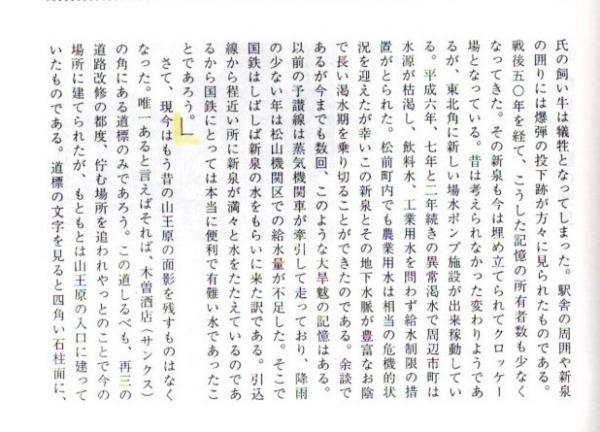 氏の飼い牛は犠牲となってしまった。駅舎の周囲や新泉
の囲りには爆弾の投下跡が方々に見られたものである。
戦後五〇年を経て、こうした記憶の所有者数も少なく
なってきた。その新泉も今は埋め立てられてクロッケー
場となっている。昔は考えられなかった変わりようであ
るが、東北角に新しい場水ポンプ施設が出来稼動してい
る。平成六年、七年と二年続きの異常渇水で周辺市町は
水源が枯渇し、飲料水、工業用水を問わず給水制限の措
置がとられた。松前町内でも農業用水は相当の危機的状
況を迎えたが幸いこの新泉とその地下水脈が豊富なお陰
で長い渇水期を乗り切ることができたのである。余談で
あるが今までも数回、このような大旱魃の記憶はある。
以前の予讃線は蒸気機関車が牽引して走っており、降雨
の少ない年は松山機関区での給水量が不足した。そこで
国鉄はしばしば新泉の水をもらいに来た訳である。引込
線から程近い所に新泉が満々と水をたたえているのであ
るから国鉄にとっては本当に便利で有難い水であったこ
とであろう。
さて、現今はもう昔の山王原の面影を残すものはなく
なった。唯一あると言えばそれば、木曽酒店（サンクス）
の角にある道標のみであろう。この道しるべも、再三の
道路改修の都度、佇む場所を追われやっとのことで今の
場所に建てられたが、もともとは山王原の入口に建って
いたものである。道標の文字を見ると四角い石柱面に、